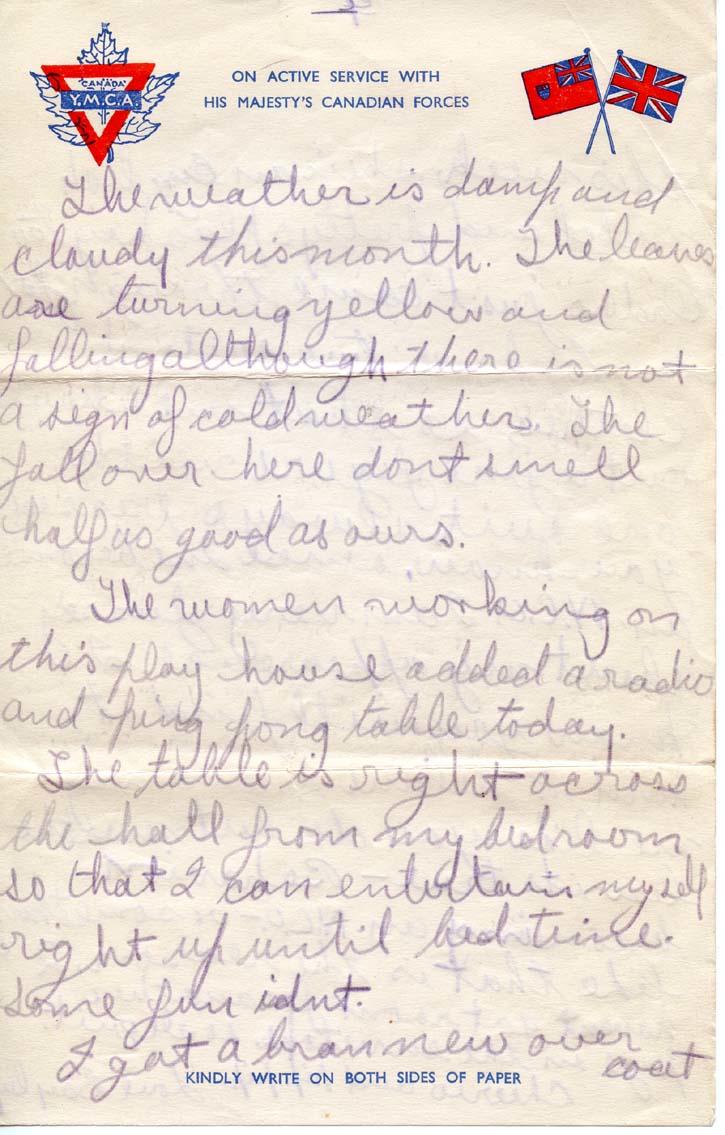 CANADA
Y.M.C.A.
ON ACTIVE SERVICE WITH
HIS MAJESTY'S CANADIAN FORCES
The weather is damp and
cloudy this month. The leaves
are turning yellow and
falling although there is not
a sign of cold weather. The
fall over here dont smell
half as good as ours.
The women working on
this play house added a radio
and ping pong table today.
The table is right across
the hall from my bedroom
so that I can entertain myself
right up until bed time.
Some fun idnt.
I got a bran new over
coat
KINDLY WRITE ON BOTH SIDES OF PAPER